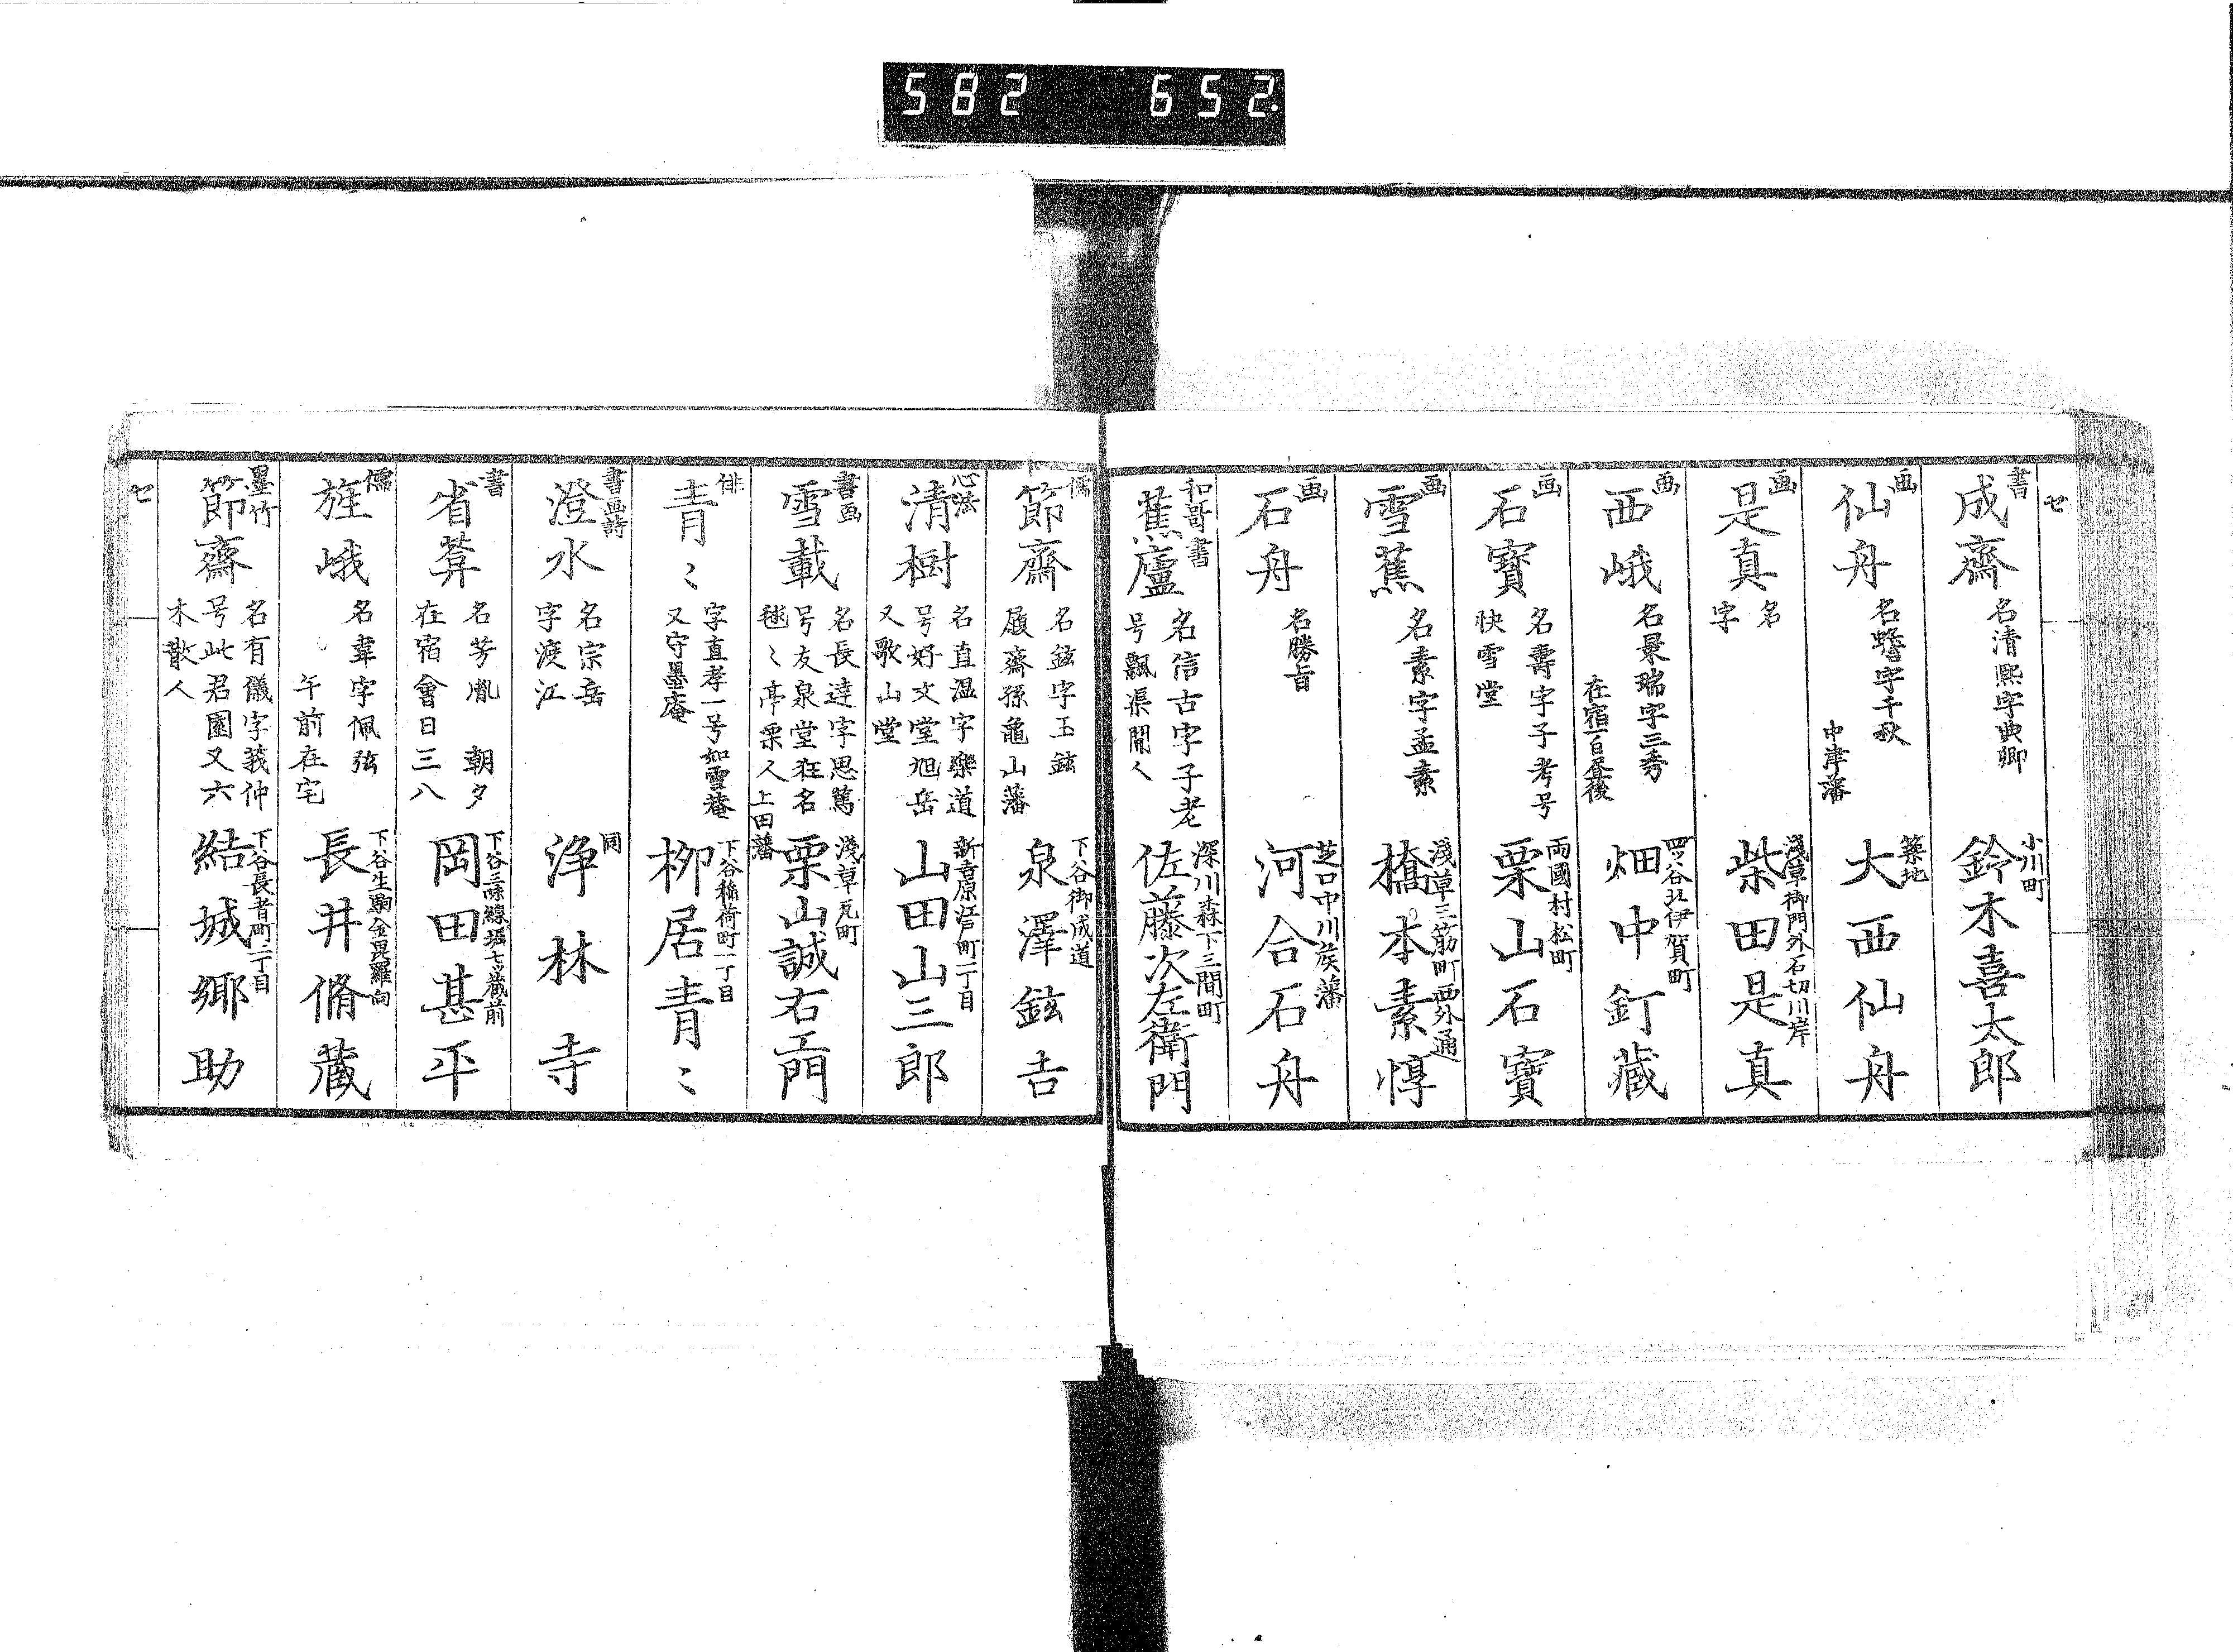 582 652.
セ
書
成齋
名清熙字典卿
小川町
鈴木喜太郎
画
仙舟
名蟾字千秋
中津藩
築地
大西仙舟
画
是真
名
字
淺草御門外石切川岸
柴田是真
画
西峨
名景瑞字三秀
在宿一百昼後
四ッ谷北伊賀町
畑中釘藏
画
石寶
名壽字子考号
快雪堂
両國村松町
栗山石寶
画
雪蕉
名素字孟素
淺草三筋町西外通
橋本素惇
画
石舟
名勝旨
芝口中川矦藩
河合石舟
和哥書
蕉廬
名信古字子老
号瓢渠閒人
深川森下三間町
佐藤次左衛門
儒
節齋
名鉉字玉鉉
履齋孫龜山藩
下谷御成道
泉澤鉉吉
心法
清樹
名直温字樂道
号好文堂旭岳
又歌山堂
新吉原江戸町二丁目
山田山三郎
書画
雪載
名長達字思篤
号友泉堂狂名
毬〻亭栗人
上田藩
淺草瓦町
栗山誠右エ門
俳
青〻
字直孝一号如雪菴
又守墨庵
下谷稲荷町一丁目
栁居青〻
書画詩
澄水
名宗岳
字渡江
同
浄林寺
書
省葊
名芳胤 朝夕
在宿會日三八
下谷三味線堀七ツ藏前
岡田甚平
儒
旌峨
名韋字佩弦
午前在宅
下谷生駒金毘羅向
長井脩藏
墨竹
節齋
名有儀字莪仲
号此君園又六
木散人
下谷長者町二丁目
結城郷助
セ